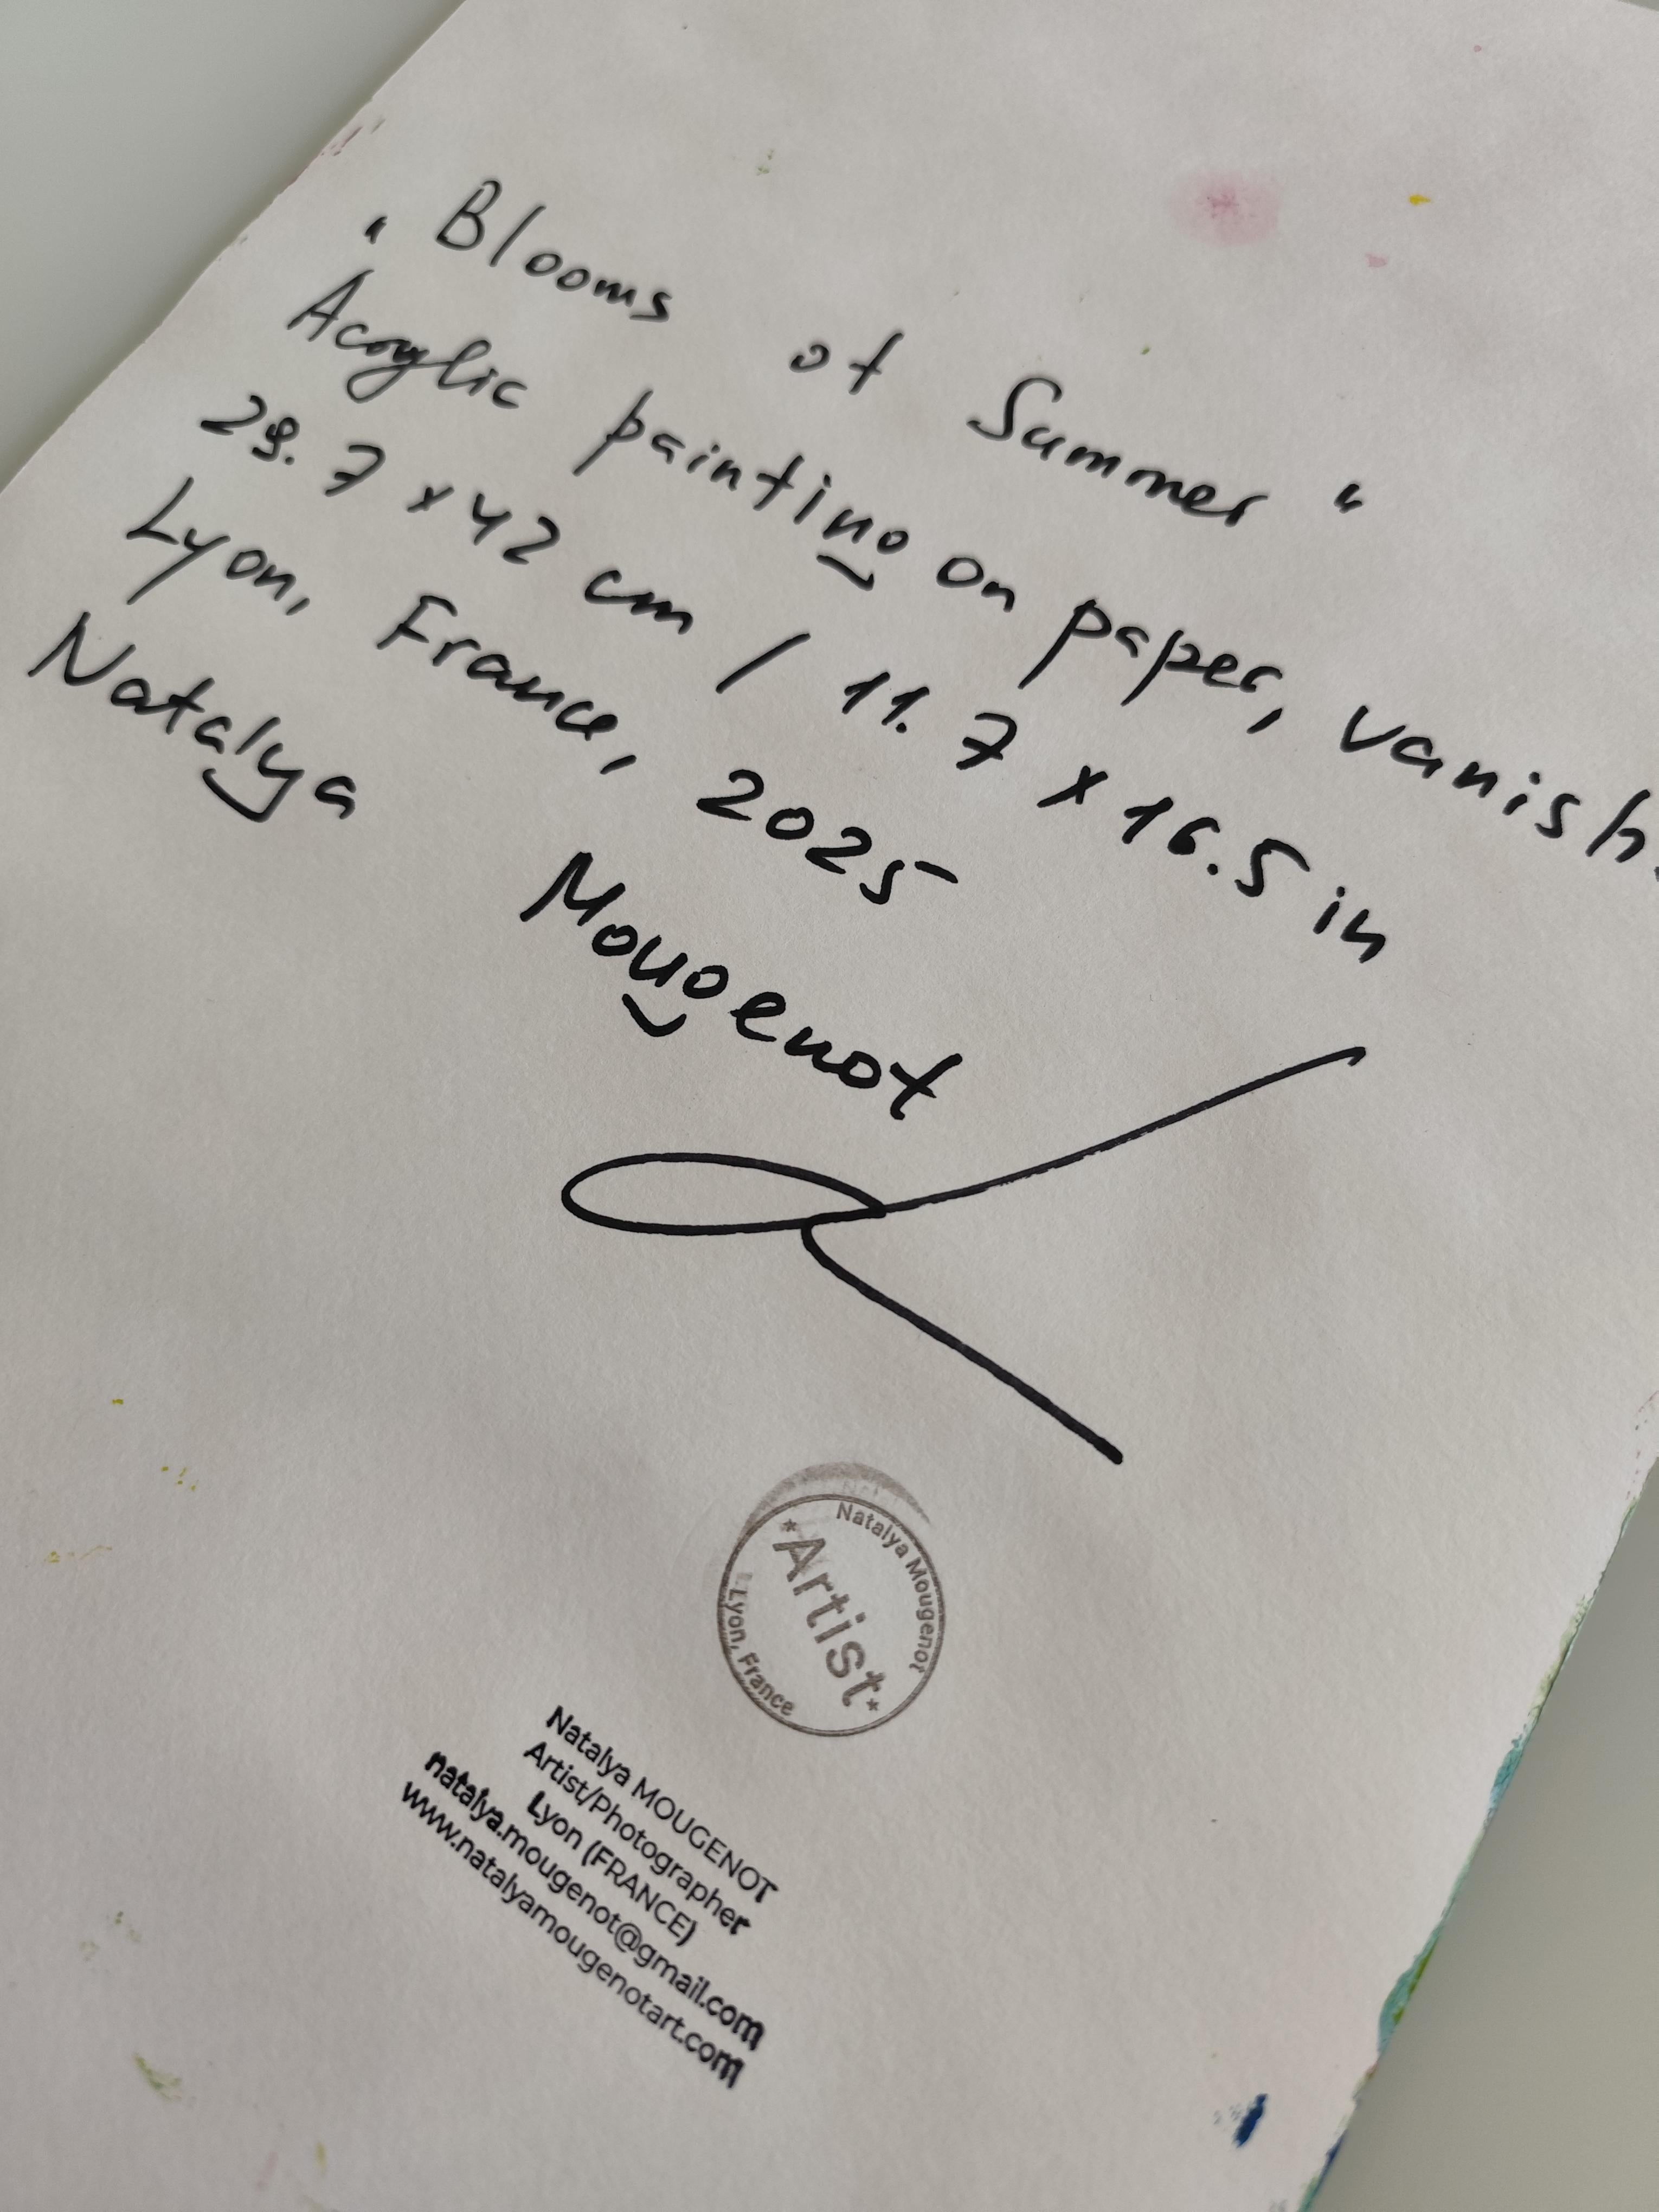 "Blooms of Summer"
Acrylic painting on paper, vanish.
29.7 x 42 cm / 11.7 x 16.5 in
Lyon, France, 2025
Natalya Mougenot
Natalya Mougenot
*Artist*
Lyon, France
Natalya MOUGENOT
Artist/Photographer
Lyon (FRANCE)
natalya.mougenot@gmail.com
www.natalyamougenotart.com